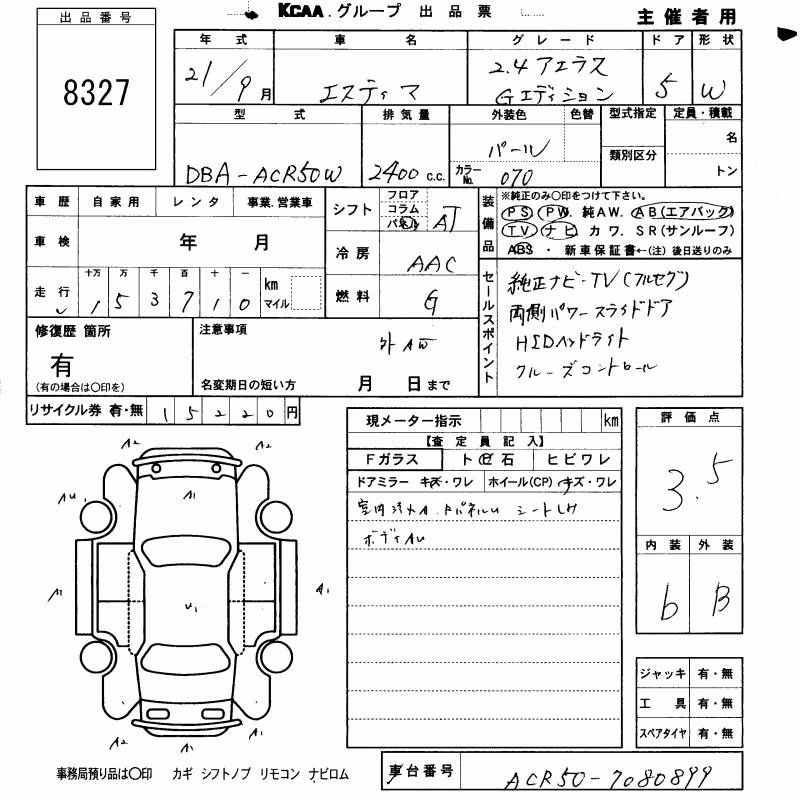 KCAA.グループ 出品票
主催者用
出品番号
8327
年式 車名 グレード ドア 形状
21/9月 エスティマ 2.4アエラス Gエディション 5 W
型式 排気量 外装色 色替 型式指定 定員・積載
類別区分
名
トン
DBA-ACR50W 2400c.c. パール
カラーNo. 070
車歴 自家用 レンタ 事業.営業車
車検 年 月
走行 十万 万 千 百 十 一
1 5 3 7 1 0 km マイル
シフト フロア コラム パネル AT
冷房 AAC
燃料 G
装備品
※純正のみ○印をつけて下さい。
PS PW. 純AW. AB(エアバッグ)
TV ナビ カワ. SR(サンルーフ)
ABS ・ 新車保証書←(注)後日送りのみ
セールスポイント
純正ナビ・TV(フルセグ)
両側パワースライドドア
HIDヘッドライト
クルーズコントロール
修復歴 箇所
有
(有の場合は○印を)
注意事項
外AW
名変期日の短い方 月 日まで
リサイクル券 有・無 15220円
現メーター指示 km
【査定員記入】
Fガラス トビ石 ヒビワレ
ドアミラー キズ・ワレ ホイール(CP) キズ・ワレ
シート
ボディAU
評価点
3.5
内装 外装
b B
A2 A2
AU1 A1 A1
A1 U1 A1
A2 A1 A2
ジャッキ 有・無
工具 有・無
スペアタイヤ 有・無
事務局預り品は○印 カギ シフトノブ リモコン ナビロム
車台番号 ACR50-7080899